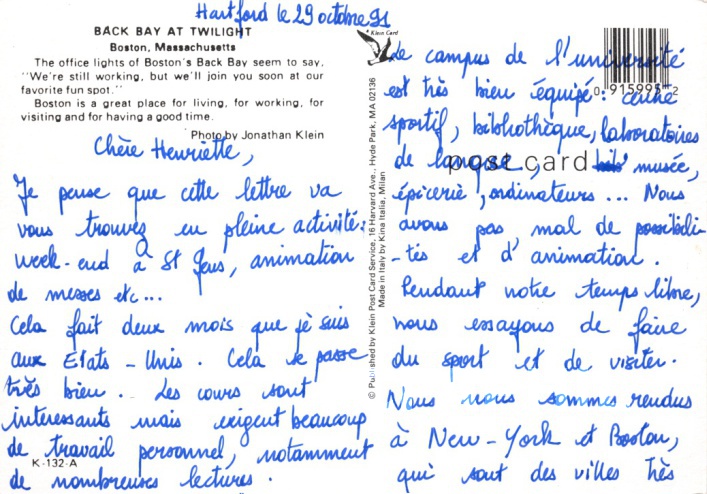 Hartford le 29 octobre 91
BACK BAY AT TWILIGHT
Boston, Massachusetts
The office lights of Boston's Back Bay seem to say,
"We're still working, but we'll join you soon at our
favorite fun spot."
Boston is a great place for living, for working, for
visiting and for having a good time.
Photo by Jonathan Klein
Chère Henriette,
Je pense que cette lettre va
vous trouvez en pleine activité:
week-end à St Jeus, animation
de messes etc...
Cela fait deux mois que je suis
aux Etats-Unis. Cela se passe
très bien. Les cours sont
interessants mais exigent beaucoup
de travail personnel, notamment
de nombreuses lectures.
K-132-A
© Published by Klein Post Card Service, 16 Harvard Ave., Hyde Park, MA 02136
Made in Italy by Kina Italia, Milan
Klein Card
0 915995 2
post card
Le campus de l'université
est très bien équipé: centre
sportif, bibliothèque, laboratoires
de langue, musée,
épicerie, ordinateurs... Nous
avons pas mal de possibili-
-tés et d'animation.
Pendant notre temps libre,
nous essayons de faire
du sport et de visiter.
Nous nous sommes rendus
à New-York et Boston,
qui sont des villes très